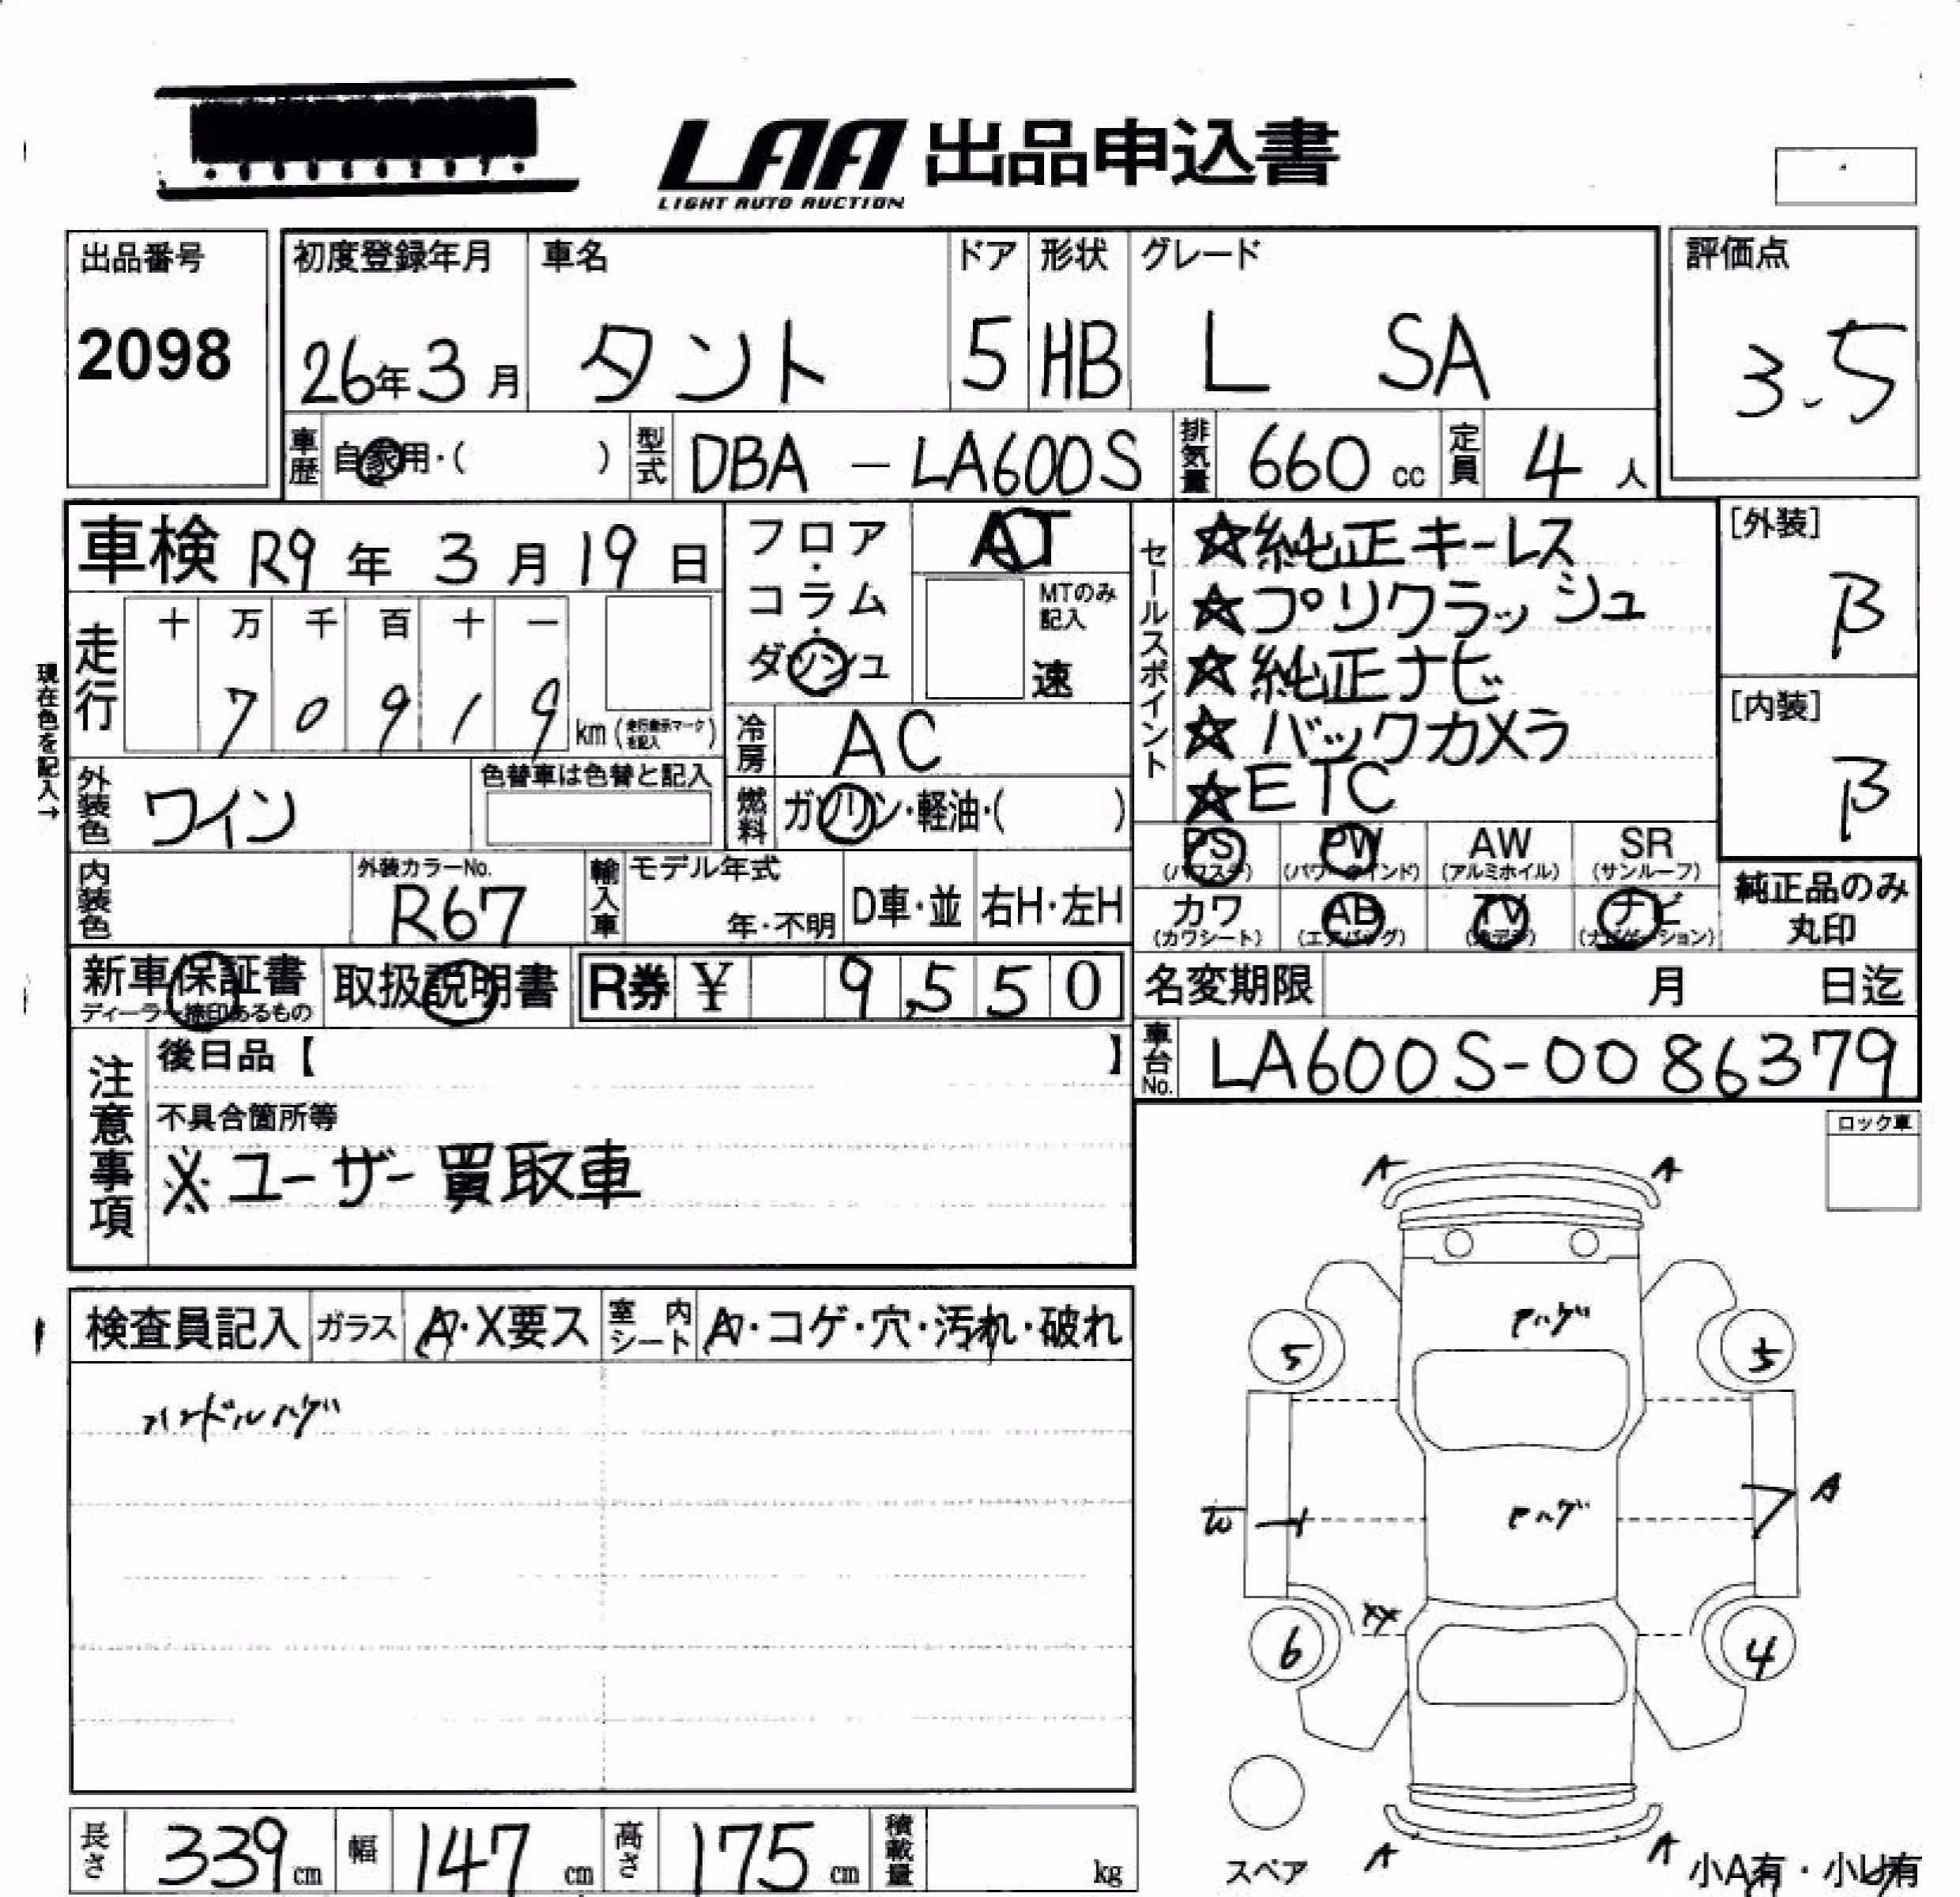 LAA 出品申込書
LIGHT AUTO AUCTION
出品番号
2098
初度登録年月 車名 ドア 形状 グレード
26年3月 タント 5 HB L SA
評価点
3.5
車歴 自家用・( ) 型式 DBA - LA600S 排気量 660 cc 定員 4 人
車検 R9 年 3 月 19 日
フロア・コラム・ダッシュ
AT
MTのみ記入
速
セールスポイント
☆純正キーレス
☆プリクラッシュ
☆純正ナビ
☆バックカメラ
☆ETC
[外装]
B
[内装]
B
現在色を記入→
走行 十 万 千 百 十 一
7 0 9 1 9 km (走行表示マークを記入)
冷房 AC
外装色 ワイン 色替車は色替と記入
燃料 ガソリン・軽油・( )
PS (パワステ) PW (パワーウインド) AW (アルミホイル) SR (サンルーフ)
カワ (カワシート) AB (エアバッグ) TV (テレビ) ナビ (ナビゲーション)
純正品のみ
丸印
内装色 外装カラーNo. R67 輸入車 モデル年式 年・不明 D車・並 右H・左H
新車保証書 取扱説明書 R券 ¥ 9,550
ディーラー捺印あるもの
名変期限 月 日迄
車台No. LA600S-0086379
注意事項
後日品【 】
不具合箇所等
※ユーザー買取車
ロック車
検査員記入 ガラス A・X要ス 室内シート A・コゲ・穴・汚れ・破れ
ハンドルハゲ
A A
ハゲ
5 5
A
ハゲ
W
XX
6 4
スペア
A A
小A有・小U有
長さ 339 cm 幅 147 cm 高さ 175 cm 積載量 kg